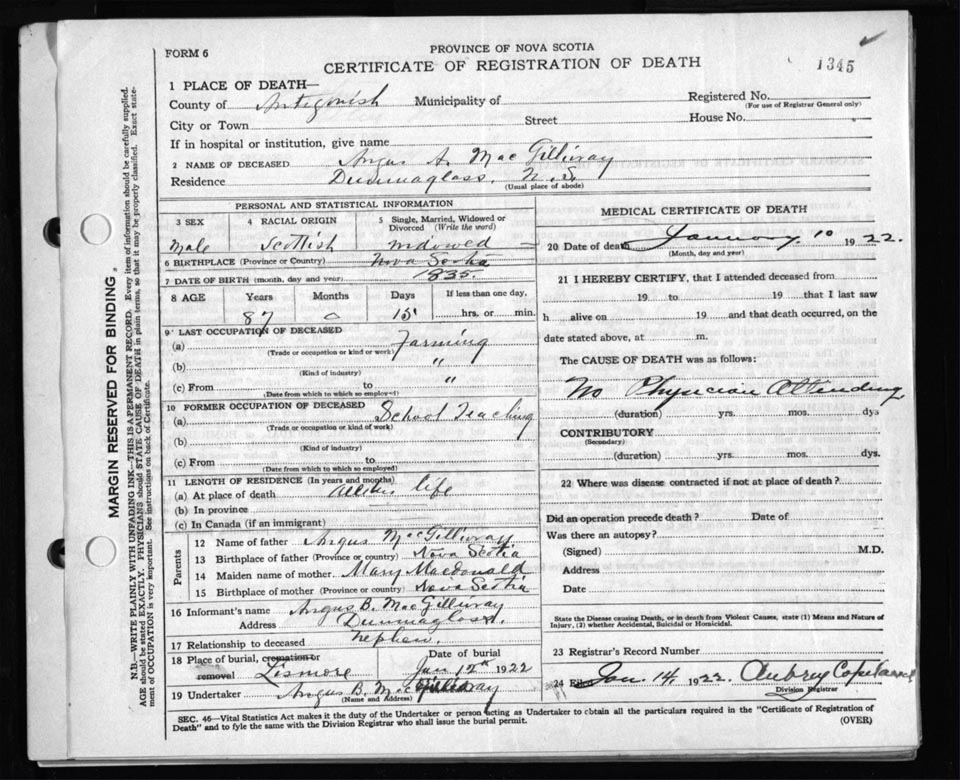 FORM 6
PROVINCE OF NOVA SCOTIA
CERTIFICATE OF REGISTRATION OF DEATH
1345
1 PLACE OF DEATH—
County of Antigonish Municipality of
Registered No.
(For use of Registrar General only)
City or Town Street House No.
If in hospital or institution, give name
2 NAME OF DECEASED Angus A. MacGillivray
Residence Dunmaglass, N.S.
(Usual place of abode)
PERSONAL AND STATISTICAL INFORMATION
3 SEX
4 RACIAL ORIGIN
5 Single, Married, Widowed or Divorced (Write the word)
Male Scottish widowed
6 BIRTHPLACE (Province or Country) Nova Scotia
7 DATE OF BIRTH (month, day and year) 1835.
8 AGE Years Months Days If less than one day,
87 0 15 hrs. or min.
9 LAST OCCUPATION OF DECEASED
(a) Farming
(Trade or occupation or kind of work)
(b) "
(Kind of industry)
(c) From to "
(Date from which to which so employed)
10 FORMER OCCUPATION OF DECEASED
(a) School Teaching
(Trade or occupation or kind of work)
(b)
(Kind of industry)
(c) From to
(Date from which to which so employed)
11 LENGTH OF RESIDENCE (In years and months)
(a) At place of death life
(b) In province
(c) In Canada (if an immigrant)
Parents
12 Name of father Angus MacGillivray
13 Birthplace of father (Province or country) Nova Scotia
14 Maiden name of mother Mary Macdonald
15 Birthplace of mother (Province or country) Nova Scotia
16 Informant's name Angus B. MacGillivray
Address Dunmaglass.
17 Relationship to deceased nephew.
18 Place of burial, cremation or removal Lismore
Date of burial Jan 12th 1922
19 Undertaker Angus B. MacGillivray
(Name and Address)
MEDICAL CERTIFICATE OF DEATH
20 Date of death January 10 1922.
(Month, day and year)
21 I HEREBY CERTIFY, that I attended deceased from
19 to 19 that I last saw
h alive on 19 and that death occurred, on the
date stated above, at m.
The CAUSE OF DEATH was as follows:
No Physician Attending
(duration) yrs. mos. dys
CONTRIBUTORY
(Secondary)
(duration) yrs. mos. dys.
22 Where was disease contracted if not at place of death?
Did an operation precede death? Date of
Was there an autopsy?
(Signed) M.D.
Address
Date
State the Disease causing Death, or in death from Violent Causes, state (1) Means and Nature of Injury, (2) whether Accidental, Suicidal or Homicidal.
23 Registrar's Record Number
24 Filed Jan. 14 1922. Aubrey Copeland
Division Registrar
SEC. 46—Vital Statistics Act makes it the duty of the Undertaker or person acting as Undertaker to obtain all the particulars required in the "Certificate of Registration of
Death" and to fyle the same with the Division Registrar who shall issue the burial permit.
(OVER)
MARGIN RESERVED FOR BINDING,
N.B.—WRITE PLAINLY WITH UNFADING INK—THIS IS A PERMANENT RECORD. Every item of information should be carefully supplied.
AGE should be stated EXACTLY. PHYSICIANS should STATE CAUSE OF DEATH in plain terms, so that it may be properly classified. Exact state-
ment of OCCUPATION is very important. See instructions on back of Certificate.